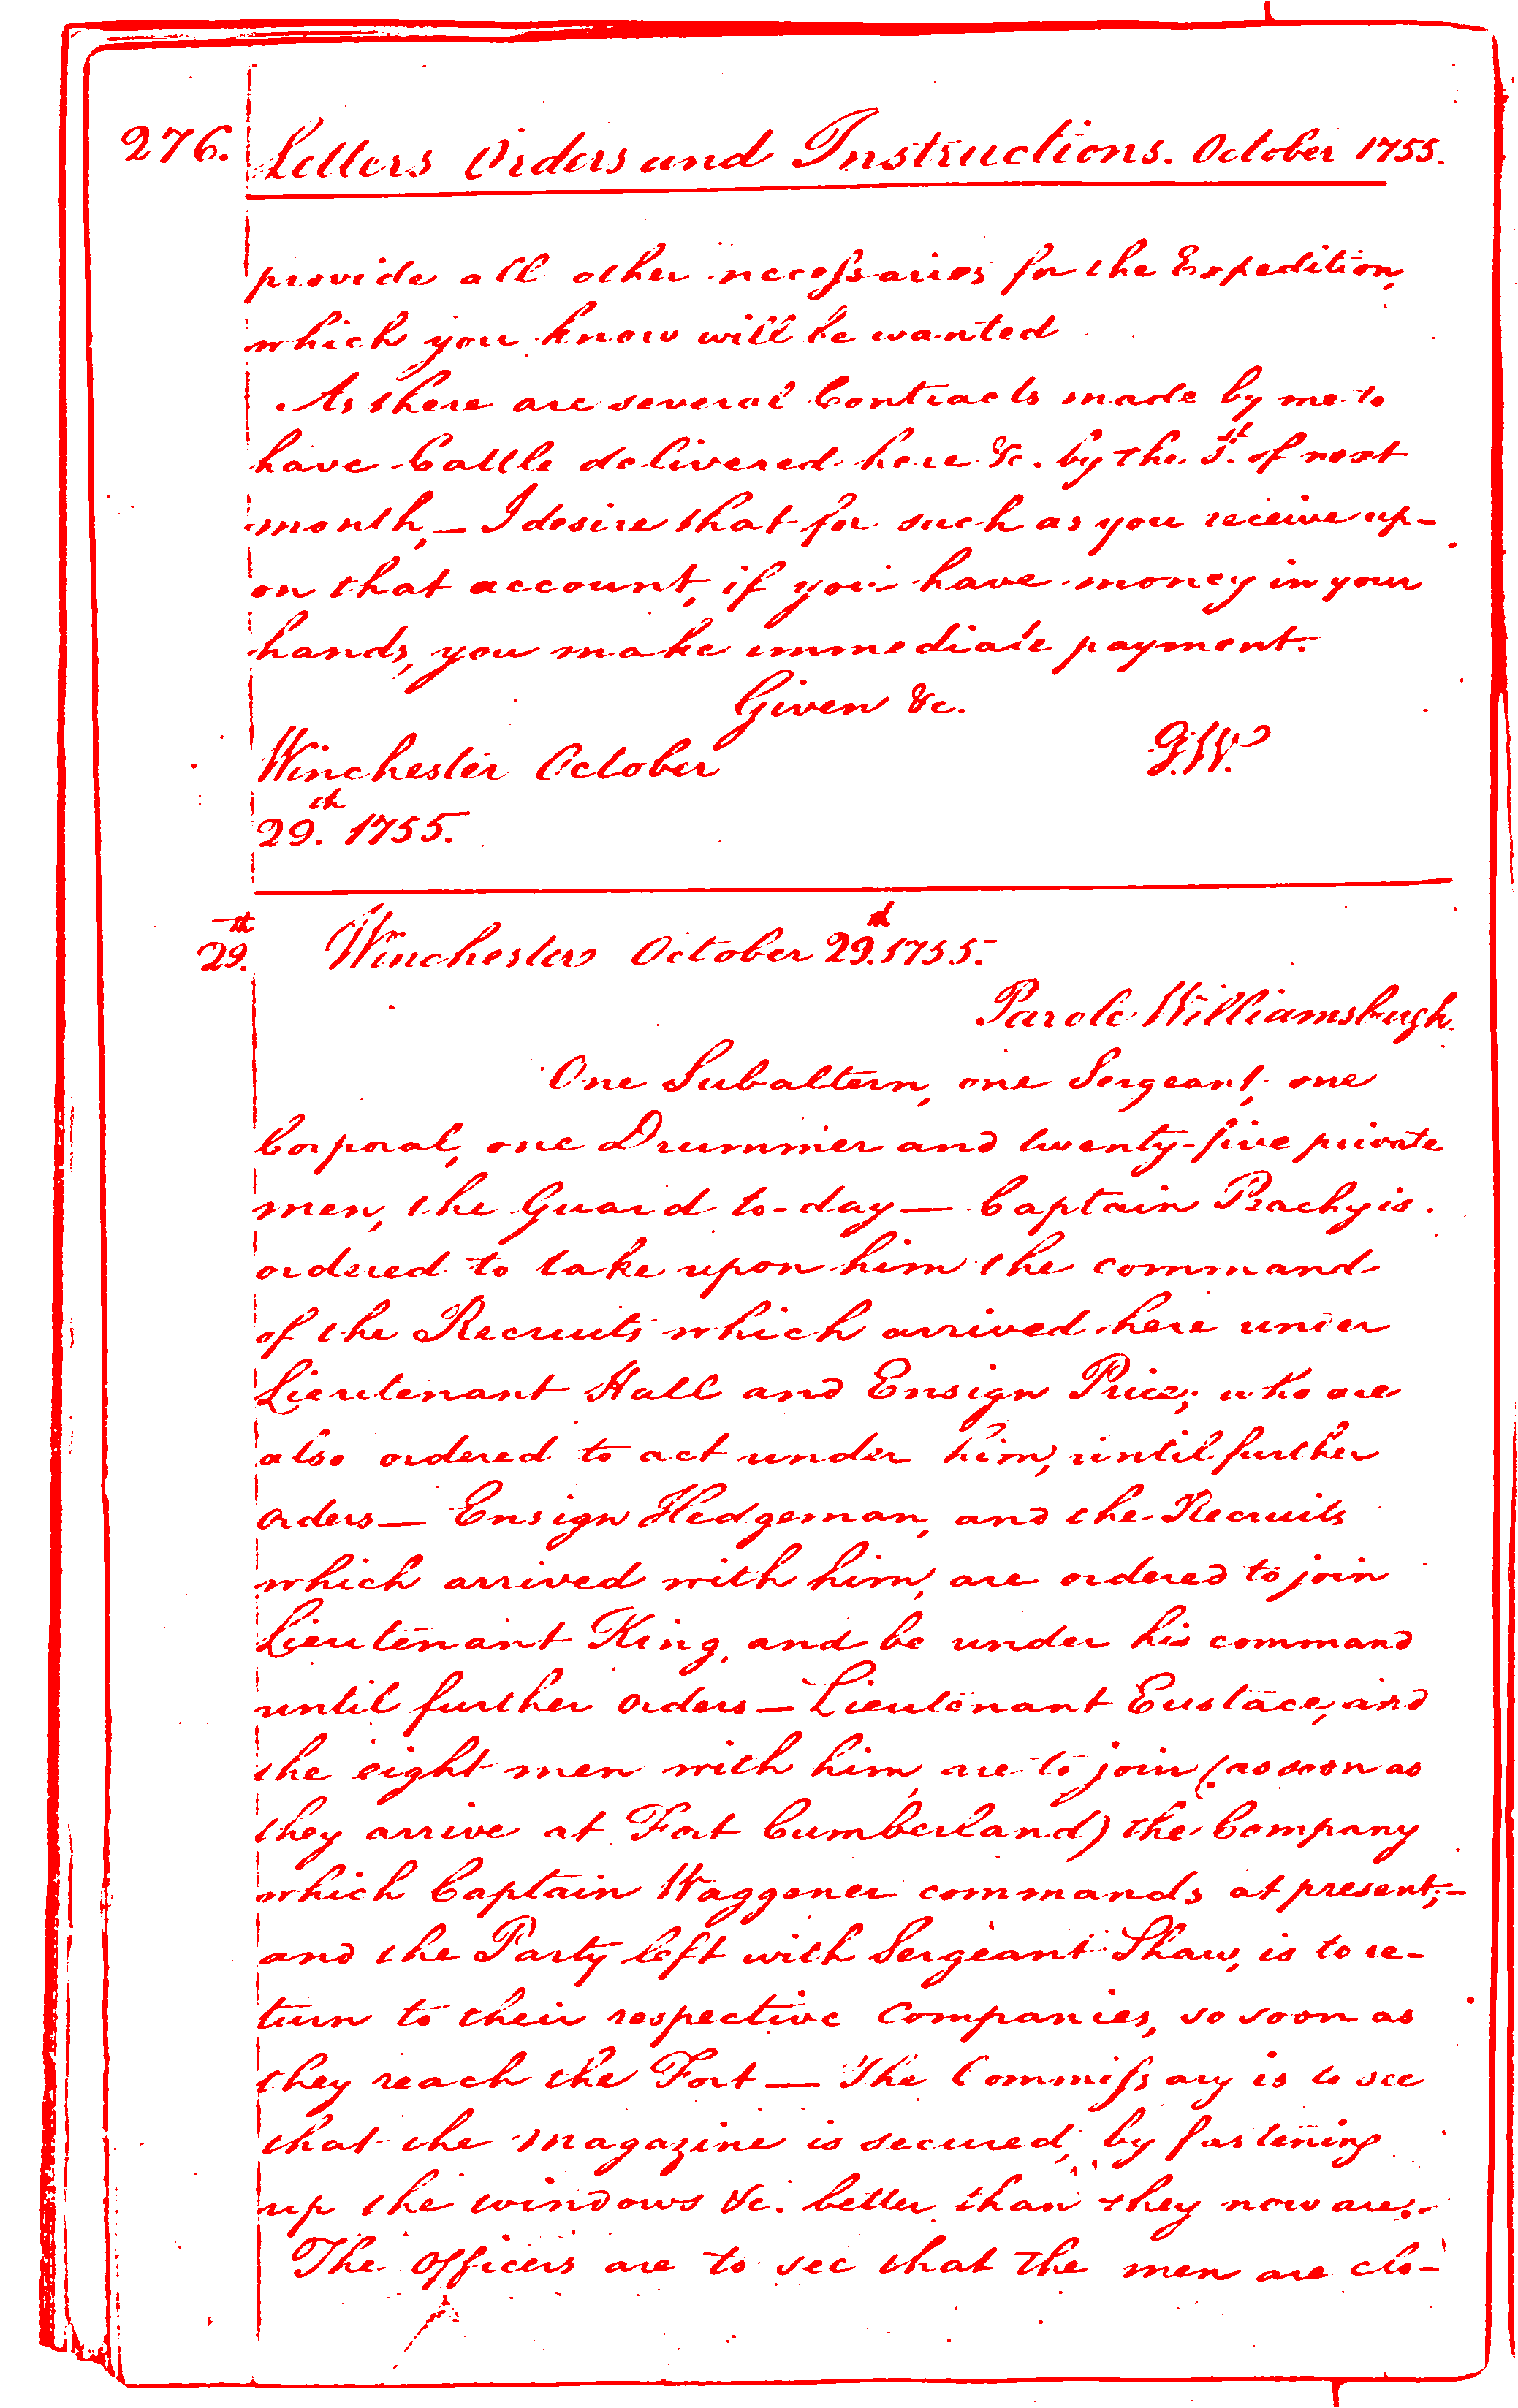 276. Letters Orders and Instructions. October 1755.
provide all other necessaries for the Expedition,
which you know will be wanted
As there are several Contracts made by me to
have Cattle delivered here &c. by the 1st. of next
month,— I desire that for such as you receive up-
on that account, if you have money in your
hands, you make immediate payment.
Given &c.
G.W.
Winchester October
29th. 1755.
29th. Winchester October 29th. 1755.
Parole Williamsburgh.
One Subaltern, one Sergeant, one
Corporal, one Drummer and twenty-five private
men, the Guard to-day— Captain Peachy is
ordered to take upon him the command
of the Recruits which arrived here under
Lieutenant Hall and Ensign Price; who are
also ordered to act under him, until further
orders— Ensign Hedgeman, and the Recruits
which arrived with him, are ordered to join
Lieutenant King, and be under his command
until further orders— Lieutenant Eustace, and
the eight men with him, are to join (as soon as
they arrive at Fort Cumberland) the Company
which Captain Waggener commands at present;—
and the Party left with Sergeant Shaw, is to re-
turn to their respective Companies, so soon as
they reach the Fort— The Commissary is to see
that the magazine is secured, by fastening
up the windows &c. better than they now are.
The Officers are to see that the men are clo-